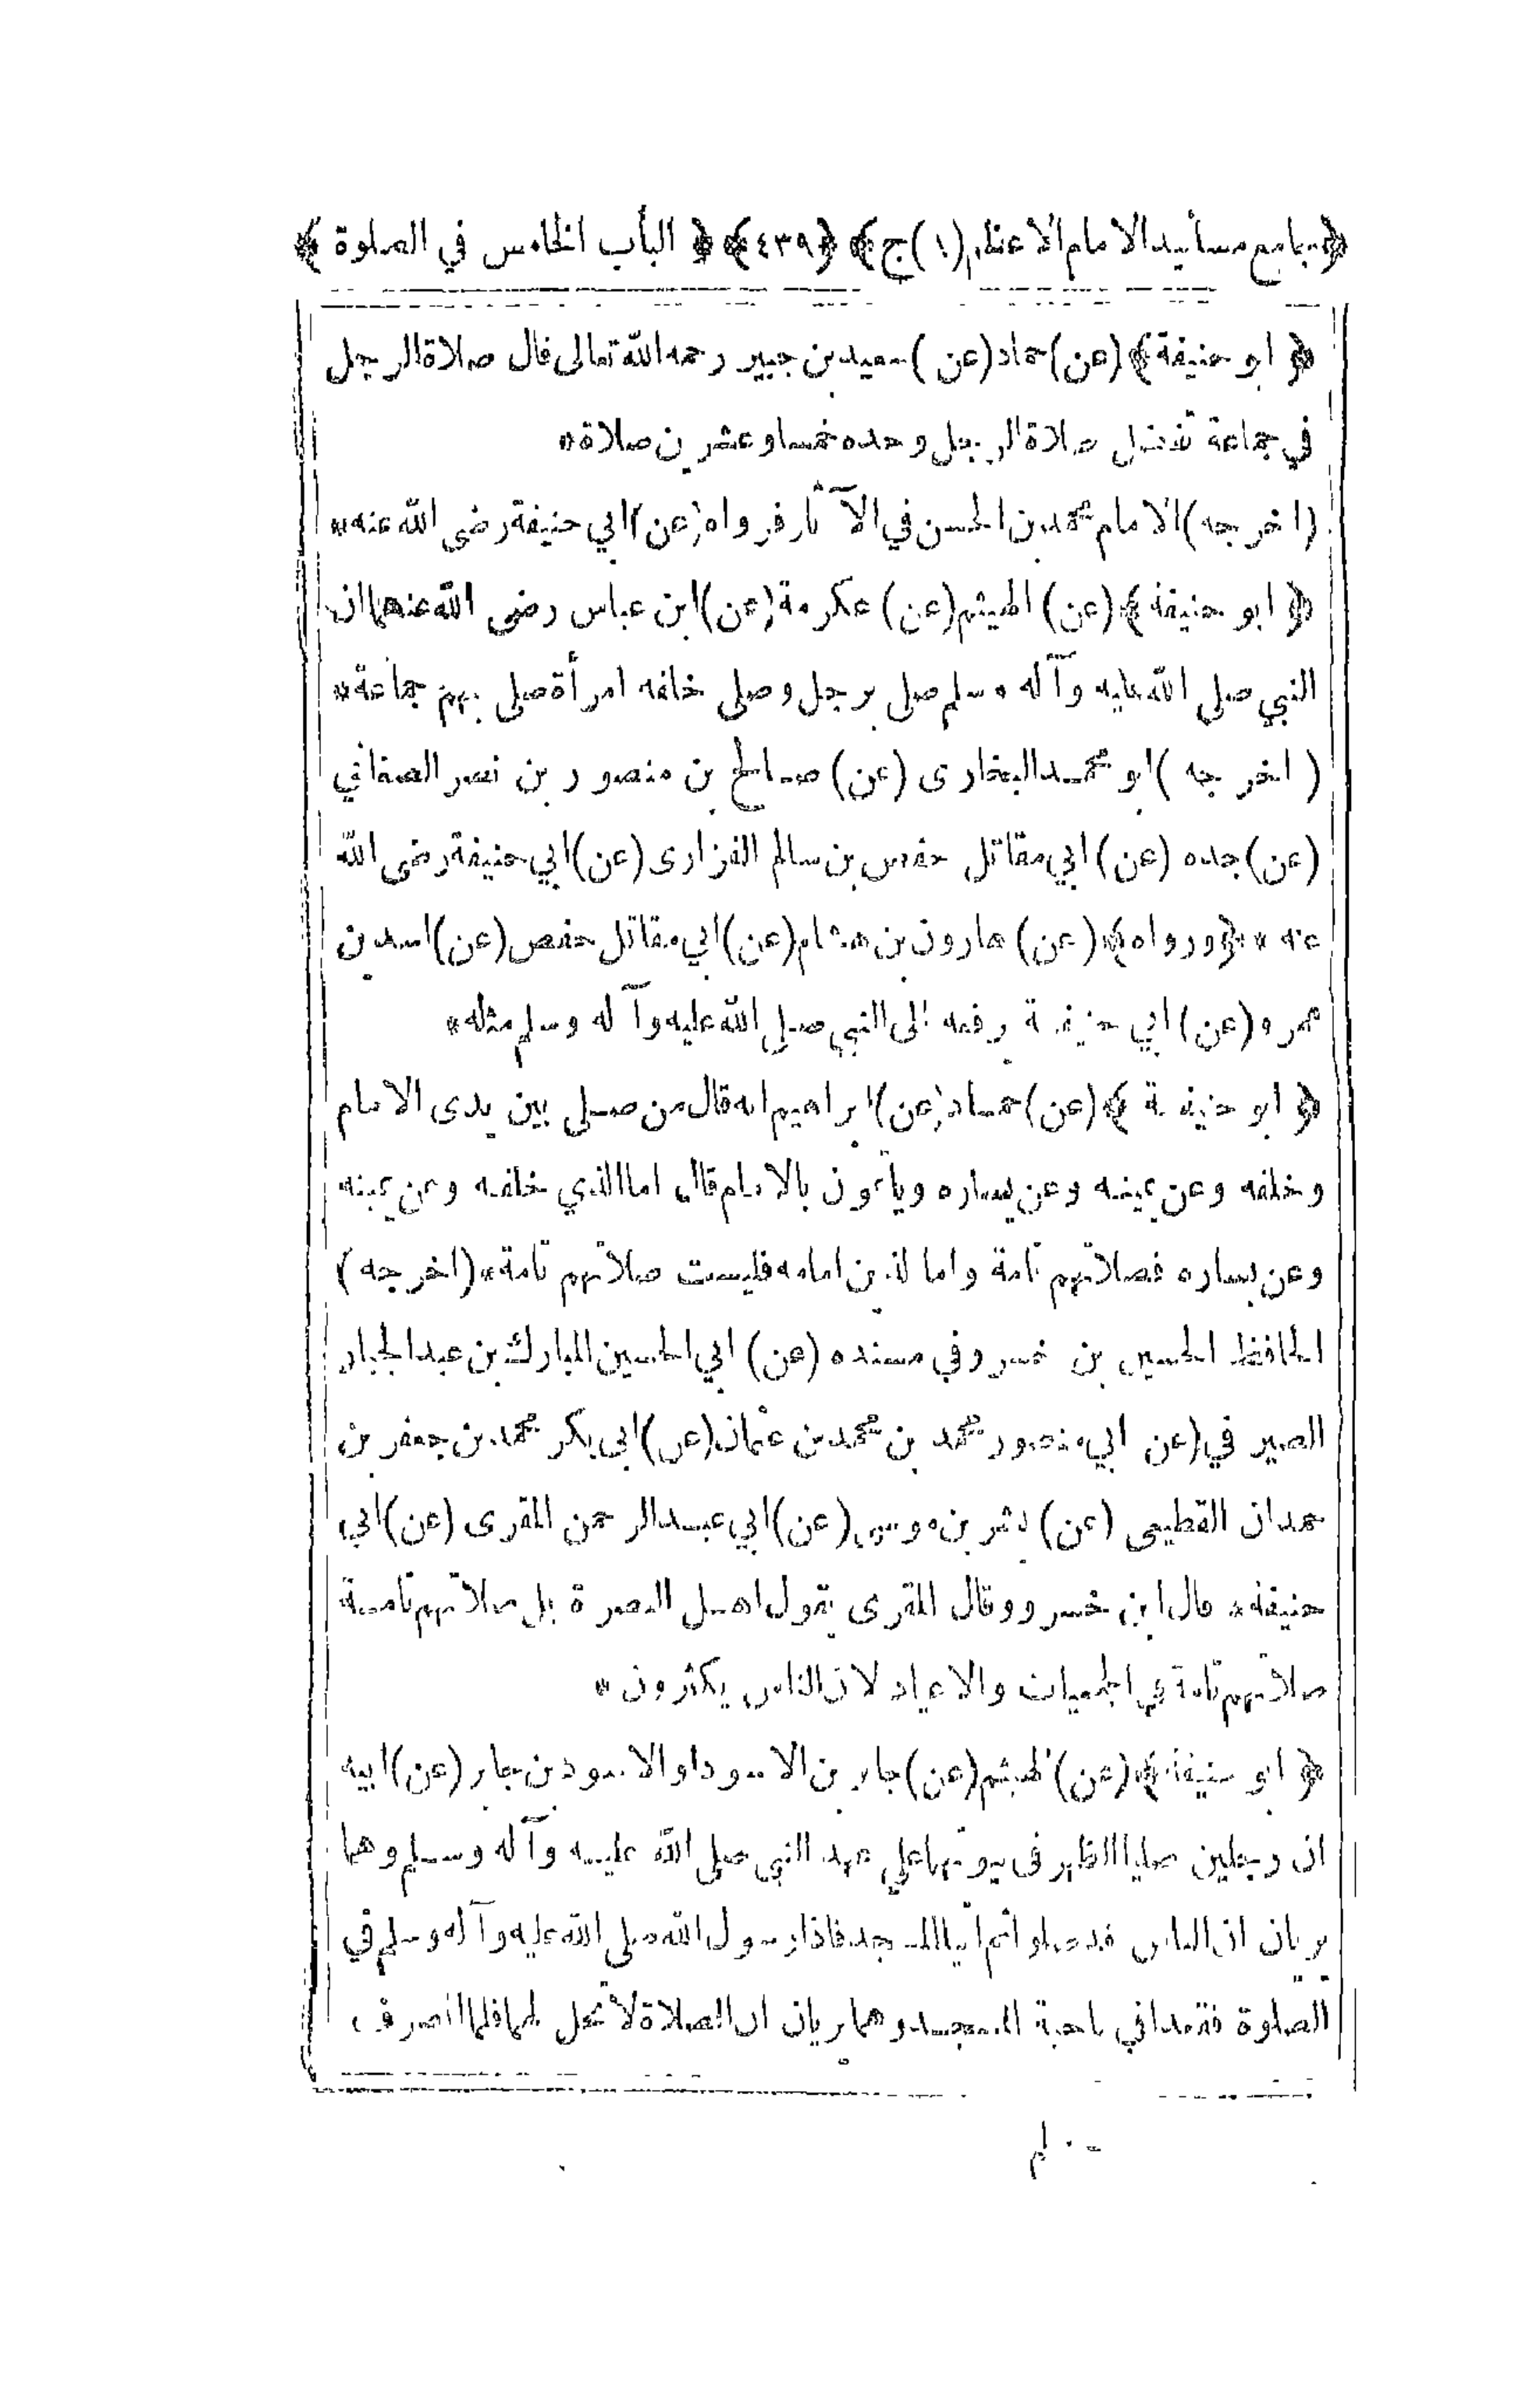 ﴿جامع مسانيد الامام الاعظم (١) ج﴾ ﴿٤٣٩﴾ ﴿ الباب الخامس في الصلوة ﴾
﴿ ابو حنيفة ﴾ (عن) حماد (عن) سعيد بن جبير رحمه الله تعالى قال صلاة الرجل
في جماعة تفضل صلاة الرجل وحده خمسا وعشرين صلاة *
(اخرجه) الامام محمد بن الحسن في الآثار فرواه (عن) ابي حنيفة رضى الله عنه *
﴿ ابو حنيفة ﴾ (عن) الهيثم (عن) عكرمة (عن) ابن عباس رضى الله عنهما ان
النبي صلى الله عليه وآله وسلم صلى برجل وصلى خلفه امرأة صلى بهم جماعة *
( اخرجه ) ابو محمد البخارى (عن) صالح بن منصور بن نصر الصغاني
(عن) جده (عن) ابي مقاتل حفص بن سالم الفزارى (عن) ابي حنيفة رضى الله
عنه * ﴿ورواه﴾ (عن) هارون بن هشام (عن) ابي مقاتل حفص (عن) اسد بن
عمرو (عن) ابي حنيفة رفعه الى النبي صلى الله عليه وآله وسلم مثله *
﴿ ابو حنيفة ﴾ (عن) حماد (عن) ابراهيم انه قال من صلى بين يدى الامام
وخلفه وعن يمينه وعن يساره ويأتمون بالامام قال اما الذي خلفه وعن يمينه
وعن يساره فصلاتهم تامة واما الذين امامه فليست صلاتهم تامة * (اخرجه)
الحافظ الحسين بن خسرو في مسنده (عن) ابي الحسين المبارك بن عبد الجبار
الصيرفي (عن ابي منصور محمد بن محمد بن عثمان (عن) ابى بكر محمد بن جعفر بن
حمدان القطيعى (عن) بشر بن موسى (عن) ابي عبد الرحمن المقرى (عن) ابي
حنيفة * قال ابن خسرو وقال المقرى يقول اهل البصرة بل صلاتهم تامة
صلاتهم تامة في الجمعيات والاعياد لان الناس يكثرون *
﴿ ابو حنيفة ﴾ (عن) الهيثم (عن) جابر بن الاسود او الاسود بن جابر (عن) ابيه
ان رجلين صليا الظهر في بيوتهما على عهد النبي صلى الله عليه وآله وسلم وهما
يريان ان الناس قد صلوا ثم اتيا المسجد فاذا رسول الله صلى الله عليه وآله وسلم في
الصلوة فقعدا في ناحية المسجد وهما يريان ان الصلاة لا تحل لهما فلما انصرف